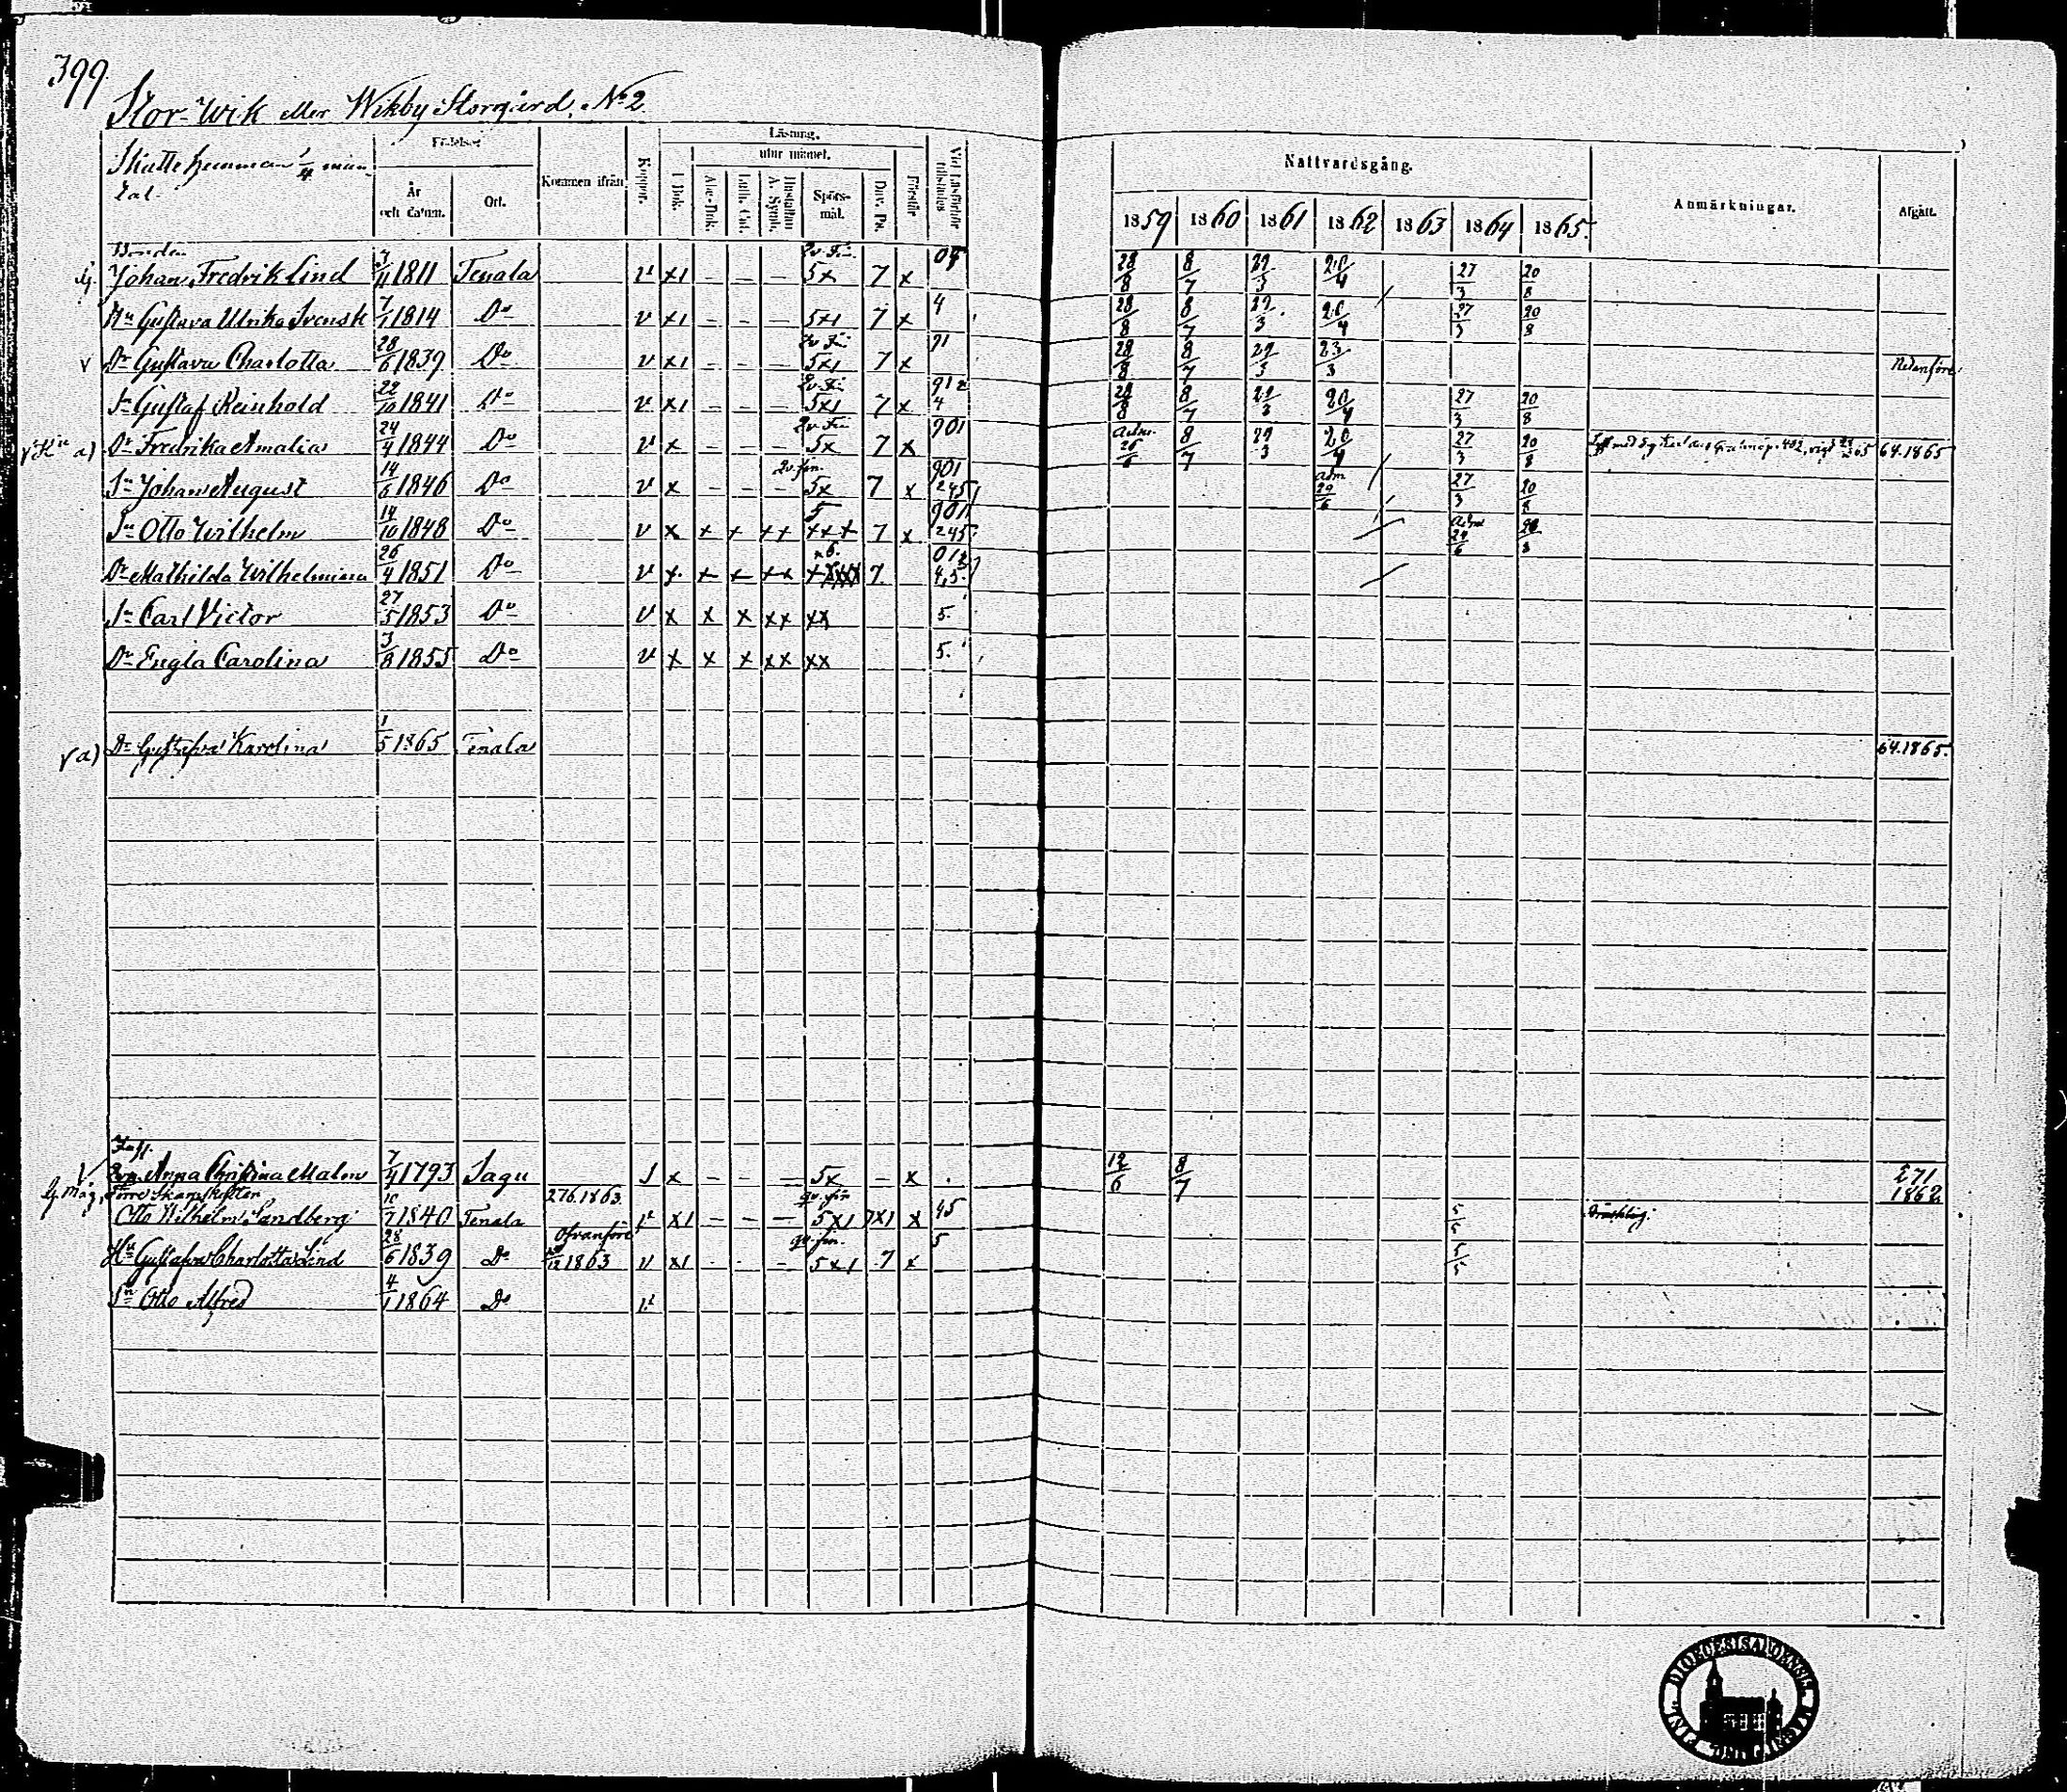 399.
Stor-Wik eller Wikby Storgård, No 2.
Skatte hemman 1/4 man
tal.
Födelse
År och datum. Ort. Kommen ifrån Koppor. Läsning. I Bok. utur minnet. Abc-Bok. Luth. Cat. Hustaflan A. Symb. Spörs-mål. Dav. Ps. Förstår Vid Läsförhör tillstädes
Nattvardsgång. Anmärkningar. Afgått.
1859 1860 1861 1862 1863 1864 1865.
Bonden 2v. fin.
Johan Fredrik Lind 7/11 1811 Tenala v x1 – – – 5x 7 x 28/8 8/7 29/3 20/4 27/3 20/8
Hu Gustava Ulrika Svensk 7/1 1814 Do v x1 – – – 5x1 7 x 4 28/8 8/7 29/3 20/4 27/3 20/8
v Dr Gustava Charlotta 28/6 1839 Do v x1 – – – 5x1 7 x 28/8 8/7 29/3 23/3 Nedanföre
Sn Gustaf Reinhold 22/10 1841 Do v x1 – – – 5x1 7 x 912 4 28/8 8/7 29/3 20/4 27/3 20/8
a) Dr Fredrika Amalia 24/4 1844 Do v x – – – 5x 7 x 901 8/7 29/3 20/4 27/3 20/8 64.1865
Sn Johan August 14/6 1846 Do v x – – – 5x 7 x 901 245 adm 29/6 27/3 20/8
Sn Otto Wilhelm 14/10 1848 Do v x x x xx xxx 7 x 901 245 20/8
Dr Mathilda Wilhelmina 26/4 1851 Do v x x x xx 7
Sn Carl Victor 27/5 1853 Do v x x x xx xx 5.
Dr Engla Carolina 3/8 1855 Do v x x x xx xx 5.
v a) Dr Gustafva Karolina 1/5 1865 Tenala 64.1865.
v Anna Christina Malm 7/4 1793 Sagu x – – – 5x – x 12/6 8/7 271 1862
Måg, 276.1863.
Otto Wilhelm Sandberg 10/7 1840 Tenala v x1 – – – 5x1 7x1 x 45 5/5
Ofvanföre
Hu Gustafva Charlotta Lind 28/6 1839 Do 1863 v x1 - - – 5x1 7 x 5 5/5
Sn Otto Alfred 4/1 1864 Do v